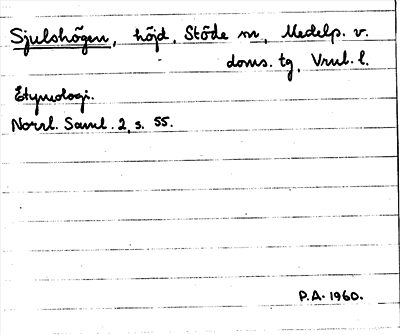 Sjulshögen, höjd, Stöde sn, Medelp. v.
doms. tg, Vnl. l.
Etymologi.
Norrl. Saml. 2, s. 55.
P.A. 1960.